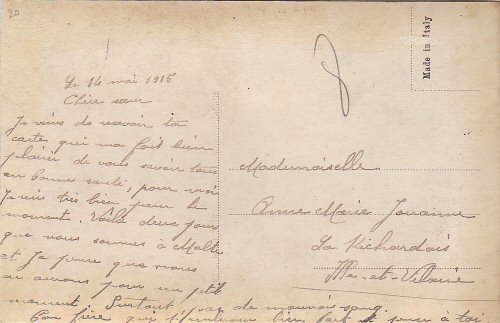 20
Le 14 mai 1915
Chère sœur
Je viens de recevoir ta
carte qui ma fait bien
plaisir de vous savoir tous
en bonne santé, pour moi
Je suis très bien pour le
moment. Voilà deux jours
que nous sommes à Malte
et Je pense que nous
en avons pour un ptit
moment. Surtout pas de mauvais sang
Ton frère qui bien fort et pense à toi
Made in Italy
Mademoiselle
Anne Marie
La Richardais
Ille-et-Vilaine